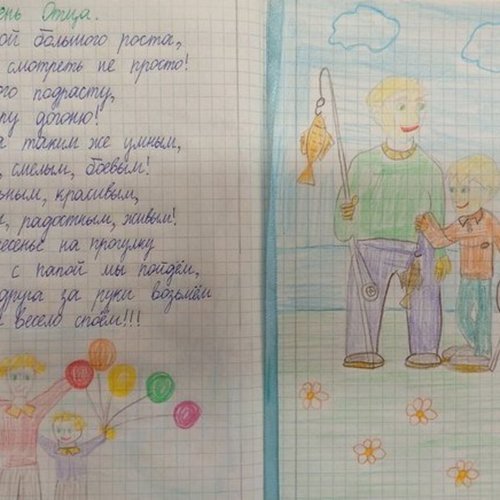 ень Отца.
ой большого роста,
смотреть не просто!
ого подрасту,
пу догоню!
а таким же умным,
, смелым, боевым!
ьным, красивым,
, радостным, живым!
есенье на прогулку
с папой мы пойдём,
друга за руки возьмём
весело споём!!!